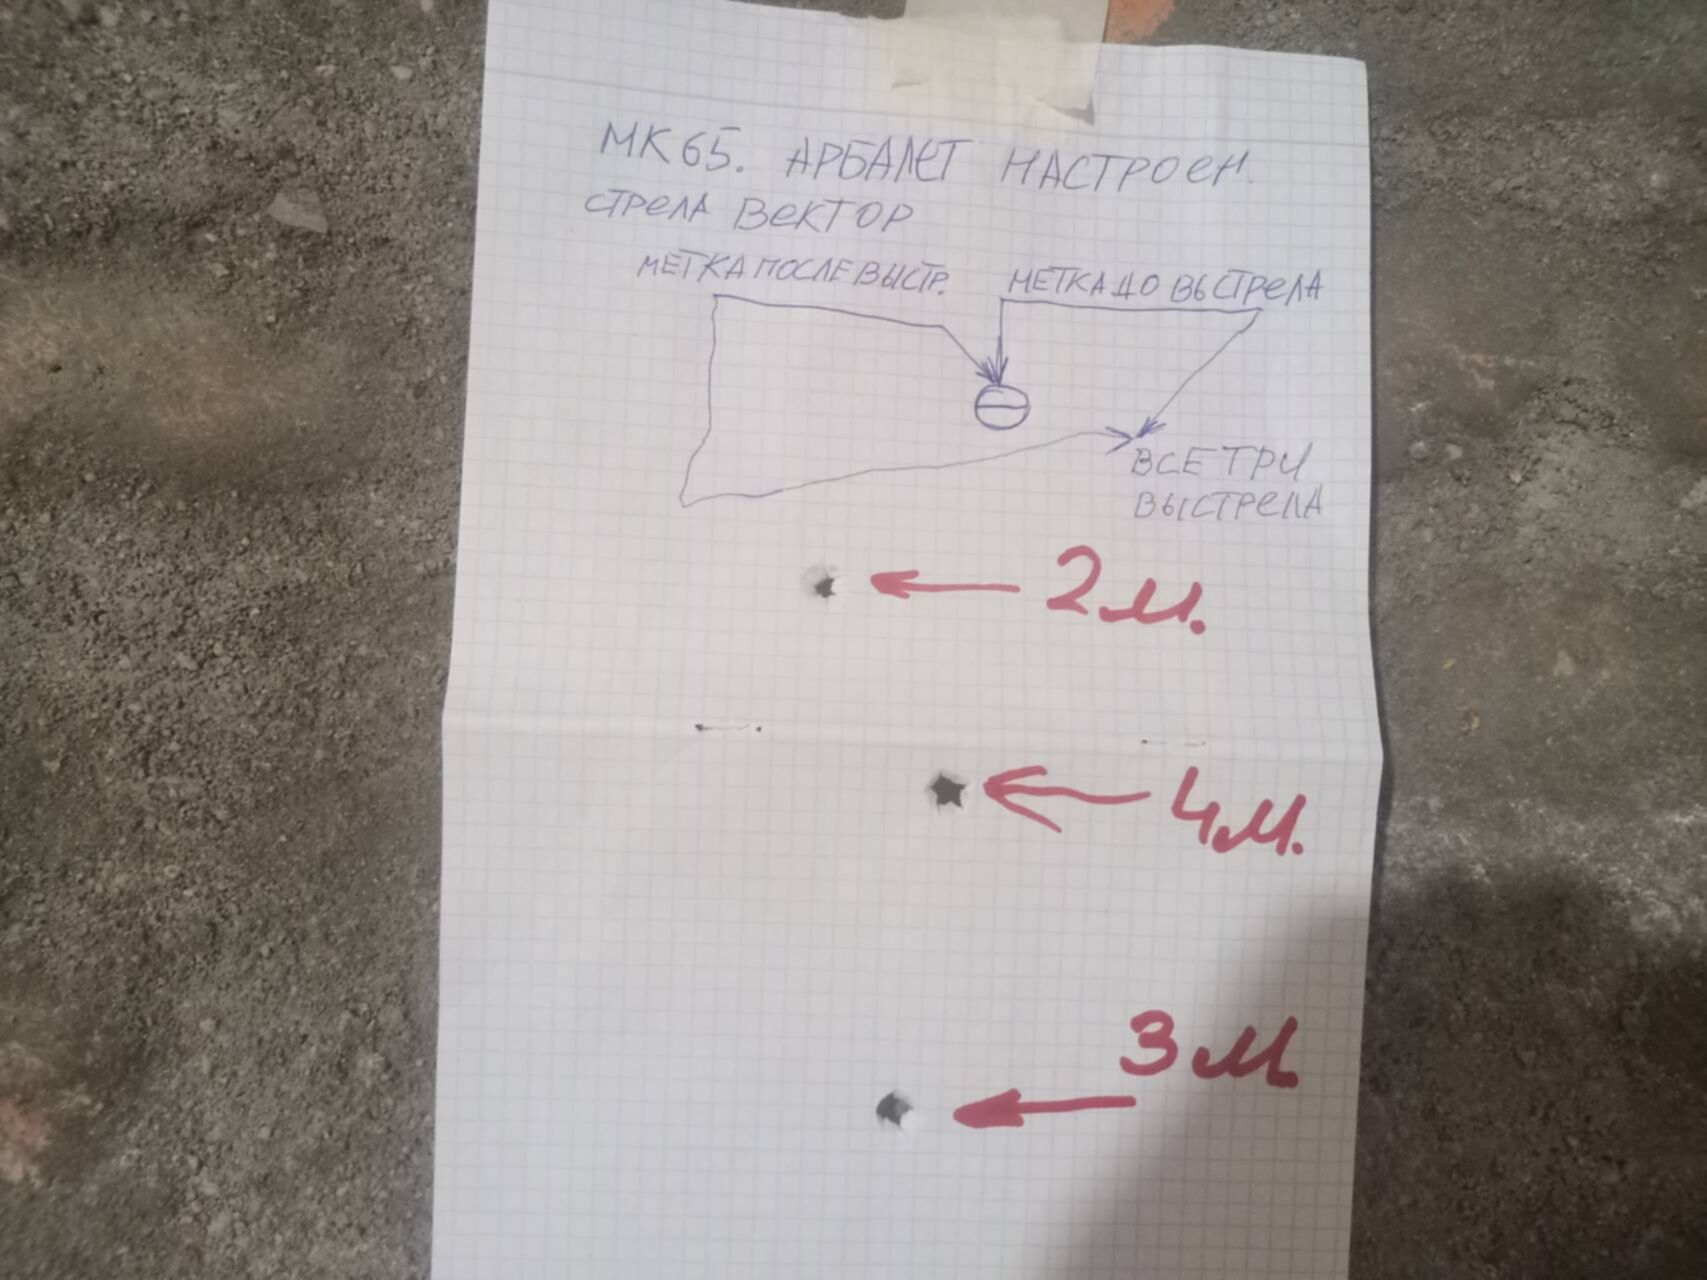 МК65. АРБАЛЕТ НАСТРОЕН.
СТРЕЛА ВЕКТОР
МЕТКА ПОСЛЕ ВЫСТР.
МЕТКА ДО ВЫСТРЕЛА
ВСЕ ТРИ
ВЫСТРЕЛА
2м.
4м.
3м